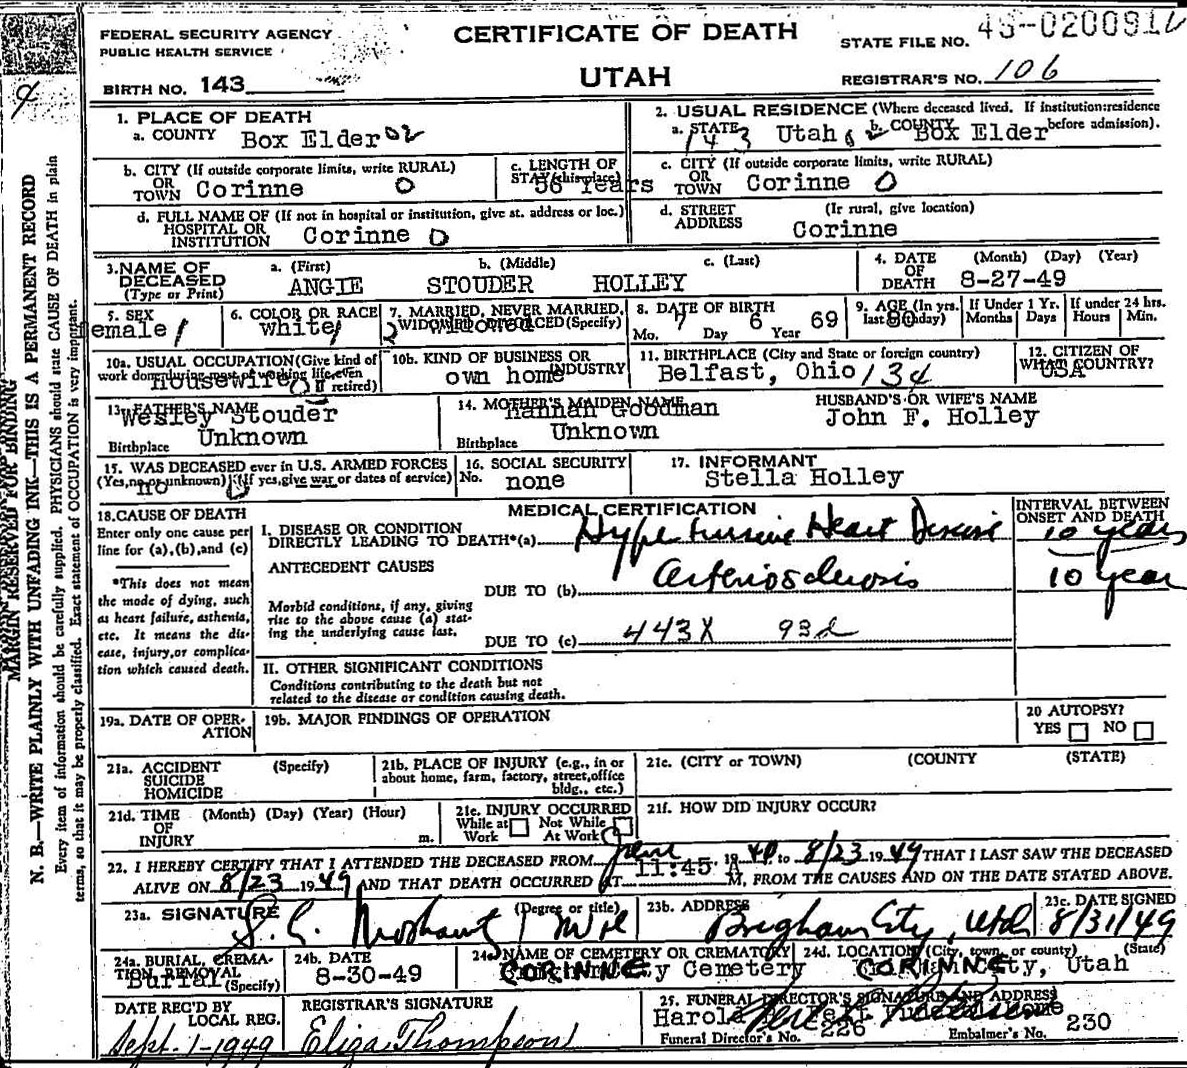 FEDERAL SECURITY AGENCY
PUBLIC HEALTH SERVICE
CERTIFICATE OF DEATH
STATE FILE NO. 49-020091
BIRTH NO. 143
UTAH
REGISTRAR'S NO. 106
1. PLACE OF DEATH
a. COUNTY Box Elder 02
2. USUAL RESIDENCE (Where deceased lived. If institution:residence before admission).
a. STATE 143 Utah b. COUNTY Box Elder
b. CITY (If outside corporate limits, write RURAL) OR TOWN Corinne 0
c. LENGTH OF STAY (this place) 56 Years
c. CITY (If outside corporate limits, write RURAL) OR TOWN Corinne 0
d. FULL NAME OF (If not in hospital or institution, give st. address or loc.) HOSPITAL OR INSTITUTION Corinne 0
d. STREET ADDRESS (If rural, give location) Corinne
3. NAME OF DECEASED (Type or Print)
a. (First) b. (Middle) c. (Last)
ANGIE STOUDER HOLLEY
4. DATE OF DEATH (Month) (Day) (Year) 8-27-49
5. SEX Female 1
6. COLOR OR RACE white 1
7. MARRIED, NEVER MARRIED, WIDOWED, DIVORCED (Specify) 2 widowed
8. DATE OF BIRTH Mo. 7 Day 6 Year 69
9. AGE (In yrs. last birthday) 80
If Under 1 Yr. Months Days
If under 24 hrs. Hours Min.
10a. USUAL OCCUPATION (Give kind of work done during most of working life, even if retired) Housewife 0
10b. KIND OF BUSINESS OR INDUSTRY own home
11. BIRTHPLACE (City and State or foreign country) Belfast, Ohio 134
12. CITIZEN OF WHAT COUNTRY? USA
13. FATHER'S NAME Wesley Stouder
Birthplace Unknown
14. MOTHER'S MAIDEN NAME Hannah Goodman
Birthplace Unknown
HUSBAND'S OR WIFE'S NAME John F. Holley
15. WAS DECEASED ever in U.S. ARMED FORCES (Yes, no, or unknown) (If yes, give war or dates of service) no
16. SOCIAL SECURITY No. none
17. INFORMANT Stella Holley
18. CAUSE OF DEATH
Enter only one cause per line for (a), (b), and (c)
*This does not mean the mode of dying, such as heart failure, asthenia, etc. It means the disease, injury, or complication which caused death.
MEDICAL CERTIFICATION
INTERVAL BETWEEN ONSET AND DEATH
I. DISEASE OR CONDITION DIRECTLY LEADING TO DEATH*(a) Hypertensive Heart Disease 10 years
ANTECEDENT CAUSES
DUE TO (b) Arteriosclerosis 10 year
Morbid conditions, if any, giving rise to the above cause (a) stating the underlying cause last.
DUE TO (c) 443X 93d
II. OTHER SIGNIFICANT CONDITIONS
Conditions contributing to the death but not related to the disease or condition causing death.
19a. DATE OF OPERATION
19b. MAJOR FINDINGS OF OPERATION
20 AUTOPSY? YES NO
21a. ACCIDENT SUICIDE HOMICIDE (Specify)
21b. PLACE OF INJURY (e.g., in or about home, farm, factory, street, office bldg., etc.)
21c. (CITY or TOWN) (COUNTY) (STATE)
21d. TIME OF INJURY (Month) (Day) (Year) (Hour) m.
21e. INJURY OCCURRED While at Work Not While At Work
21f. HOW DID INJURY OCCUR?
22. I HEREBY CERTIFY THAT I ATTENDED THE DECEASED FROM June 1940 to 8/23 1949 THAT I LAST SAW THE DECEASED
ALIVE ON 8/23 1949 AND THAT DEATH OCCURRED AT 11:45 A M, FROM THE CAUSES AND ON THE DATE STATED ABOVE.
23a. SIGNATURE (Degree or title)
23b. ADDRESS Brigham City, Utah
23c. DATE SIGNED 8/31/49
24a. BURIAL, CREMATION, REMOVAL (Specify) Burial
24b. DATE 8-30-49
24c. NAME OF CEMETERY OR CREMATORY CORINNE City Cemetery
24d. LOCATION (City, town, or county) (State) CORINNE City, Utah
DATE REC'D BY LOCAL REG. Sept. 1-1949
REGISTRAR'S SIGNATURE Eliza Thompson
25. FUNERAL DIRECTOR'S SIGNATURE AND ADDRESS
Harold
Funeral Director's No. 226 Embalmer's No. 230
MARGIN RESERVED FOR BINDING
N. B.—WRITE PLAINLY WITH UNFADING INK—THIS IS A PERMANENT RECORD
Every item of information should be carefully supplied. PHYSICIANS should state CAUSE OF DEATH in plain
terms, so that it may be properly classified. Exact statement of OCCUPATION is very important.